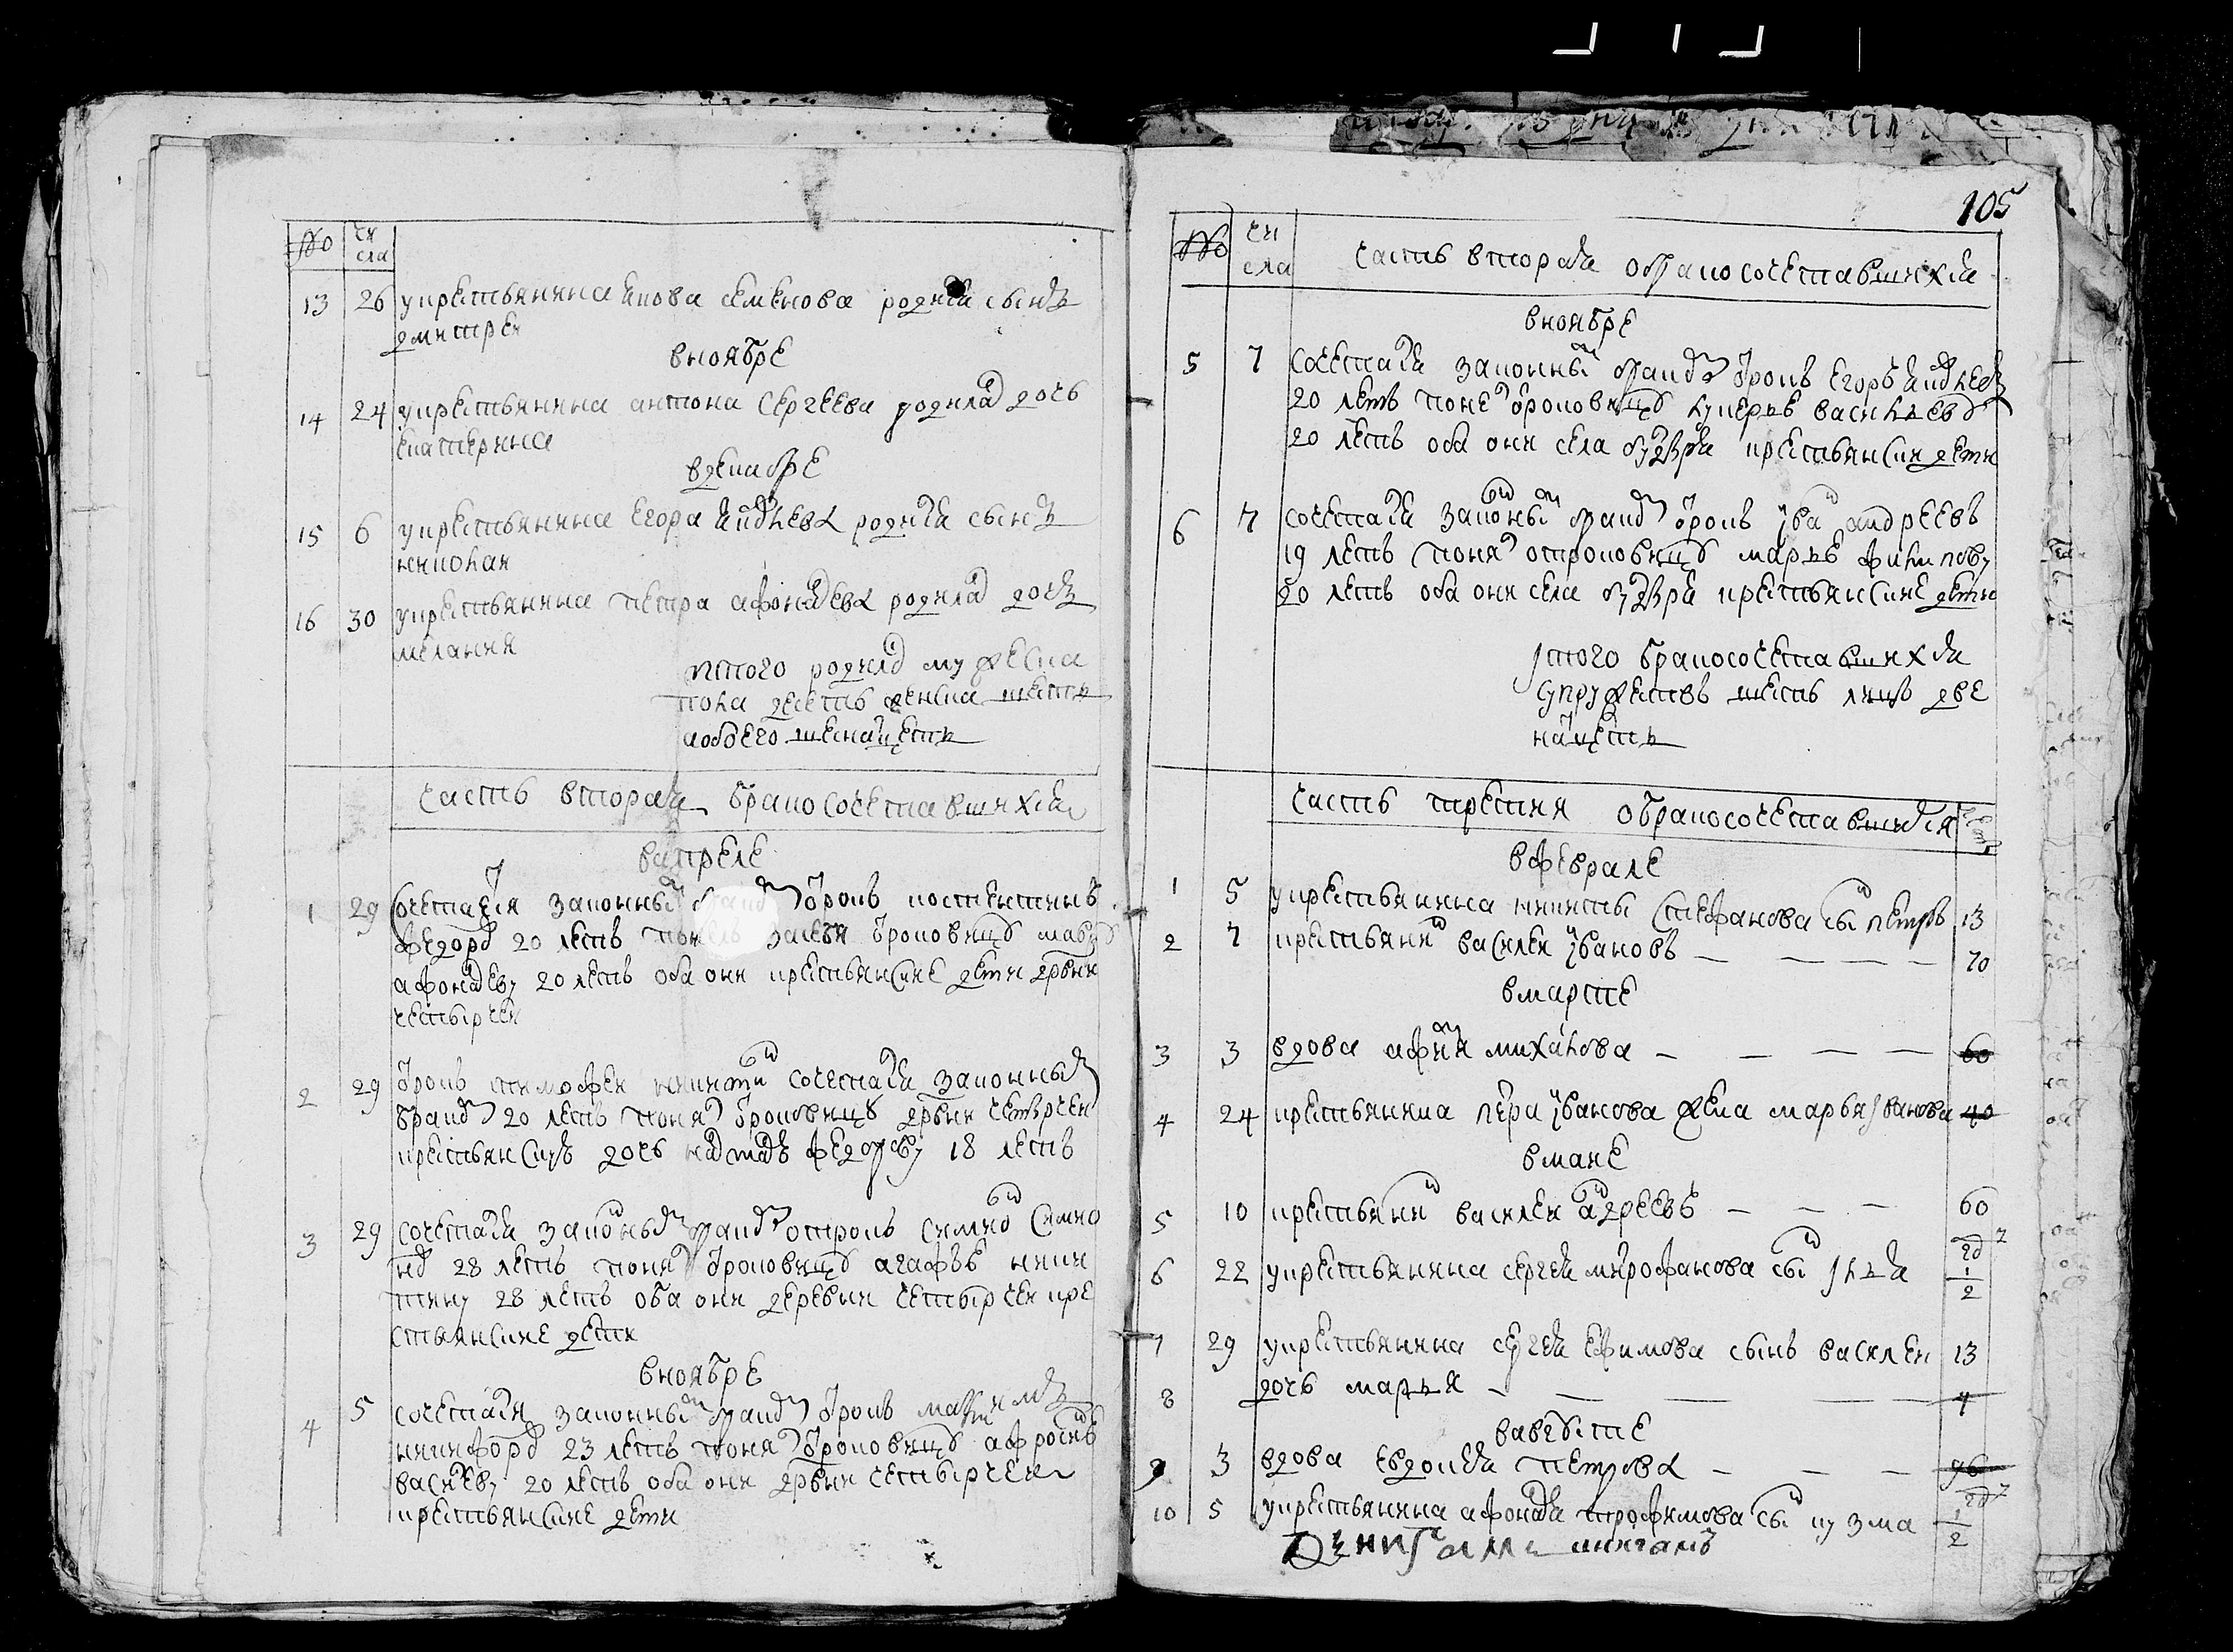 № числа
13 26 укрестьянина якова семенова родился сынъ
дмитрей
вноябре
14 24 укрестьянина антона сергеева родилас дочь
екатерина
вдекабре
15 6 укрестьянина егора родился сынъ
николай
16 30 укрестьянина петра афонасева родилас дочь
мелания
итого родилос мужеска
пола десеть женска шесть
аобоего шеснатцеть
часть вторая бракосочетавшихся
вапреле
1 29 сочетался законным бракомъ отрокъ
федоръ 20 летъ отроковицу
афонасеву 20 летъ оба они крестьянские дети дрвни
четырчей
2 29 отрокъ тимофей никитин сочетался законным
бракомъ 20 летъ понялъ отроковицу дрвни четырчей
крестьянскую дочь настасъю федорову 18 летъ
3 29 сочетался законымъ бракомъ отрокъ симион симио
новъ 28 летъ понялъ отроковицу агафью ники
тину 28 летъ оба они деревни четырчей кре
стьянские дети
вноябре
4 5 сочетался законным бракомъ отрокъ максимъ
никифоровъ 23 летъ понялъ отроковицу афросинью
василеву 20 летъ оба они дрвни четырчей
крестьянские дети
105
№ числа часть вторая обракосочетавшихся
вноябре
5 7 сочетался законным бракомъ отрокъ егоръ
20 летъ понелъ отроковицу лукерью васильеву
20 летъ оба они села крестьянския дети
6 7 сочетался законым бракомъ отрокъ иван андреевъ
19 летъ понялъ отроковицу марью филипову
20 летъ оба они села крестьянские дети
итого бракосочетавшихся
супружествъ шесть лицъ две
натцеть
часть третия обракосочетавшихся
вфеврале
1 5 укрестьянина никиты стефанова сын петръ 13
2 7 крестьянин василей ивановъ 70
вмарте
3 3 вдова михайлова 60
4 24 крестьянина иванова жена марья иванова 40
вмаие
5 10 крестьянин василей андреевъ 60
6 22 укрестьянина сергея митрофанова сын илья 1/2
7 29 укрестьянина сергея ефимова сынъ василей 13
8 дочь марья 4
вавгусте
9 3 вдова евдокея петрова
10 5 укрестьянина афонася трофимова сын кузма 1/2